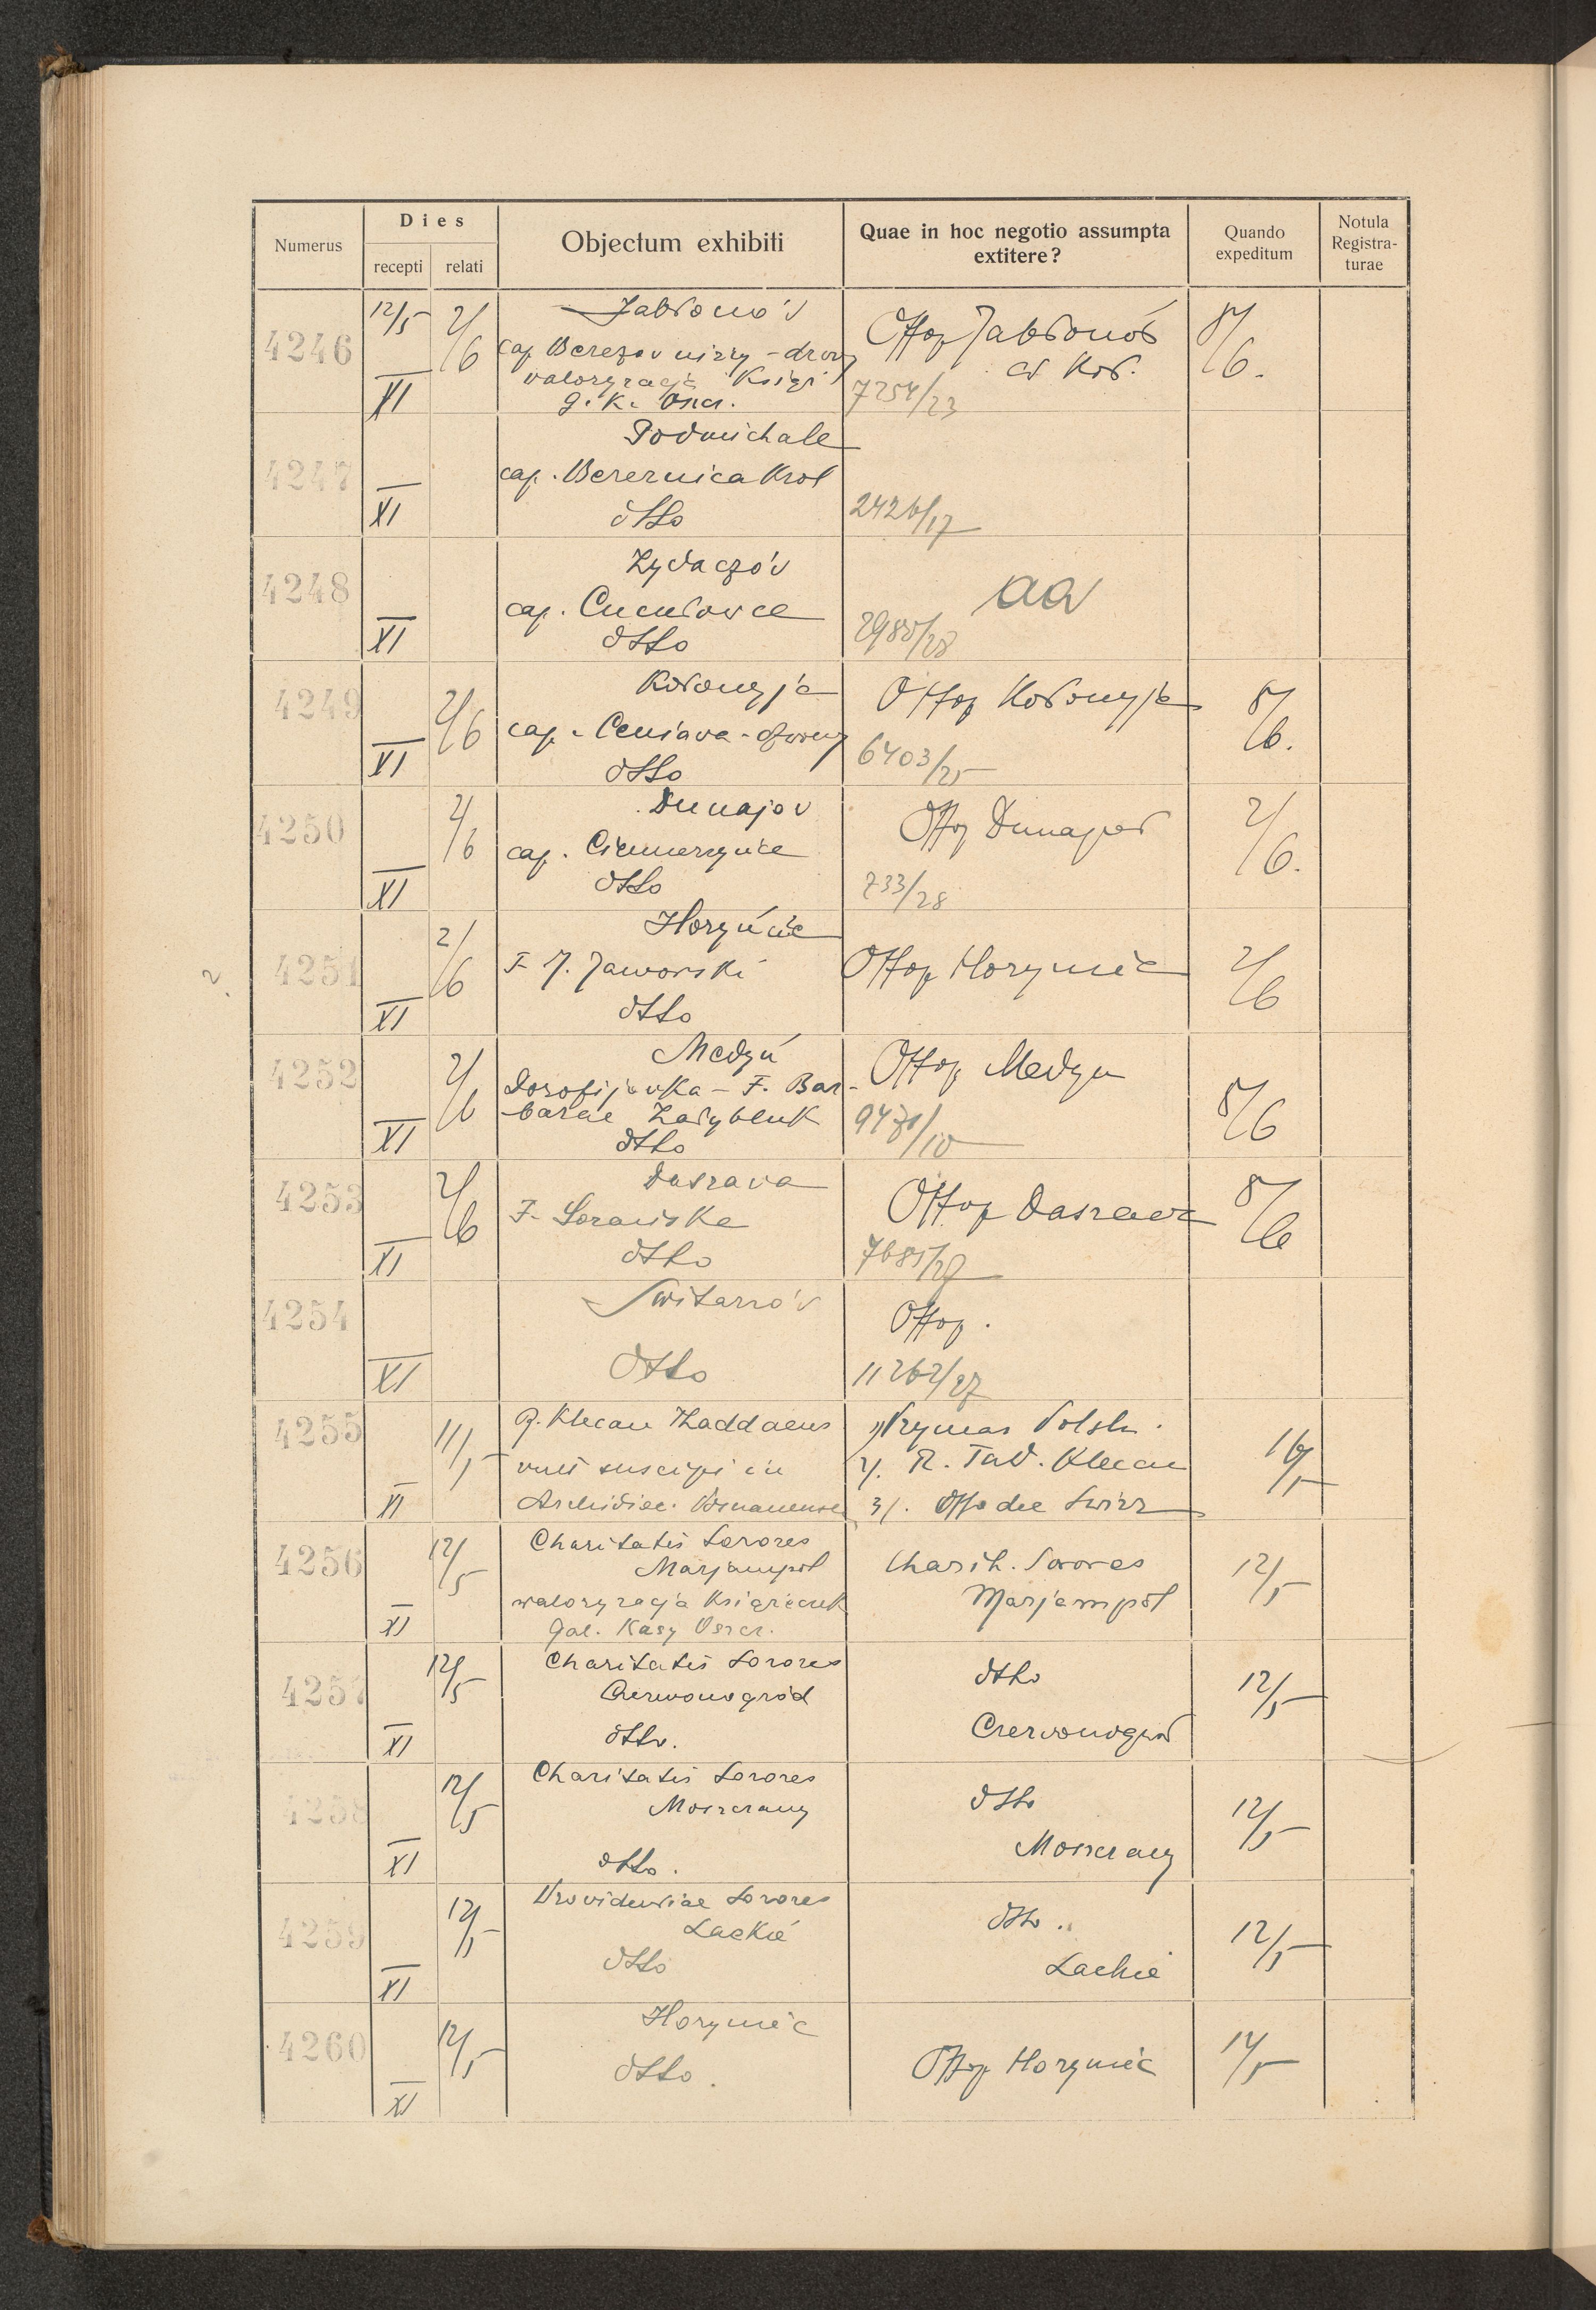 Numerus
Dies
recepti
relati
Objectum exhibiti
Quae in hoc negotio assumpta
extitere?
Quando
expeditum
Notula
Registra-
turae
4246
12/5
XI
2/6
Jabłonów
cap Berezov nizny -
waloryzacja Księz
g. k. Oszcz.
Offop Jabłonów
7254/23
8/6.
4247
XI
Podmichale
cap. Bereznica Krol
dtto
2426/17
4248
XI
Zydaczów
cap. Cucułowce
dtto
aa
2985/28
4249
XI
2/6
Kołomyja
cap. Ceniava -
dtto
Offop Kołomyja
6403/25
8/6.
4250
XI
2/6
Dunajov
cap. Ciemierzynce
dtto
Offop Dunajów
733/28
2/6.
4251
XI
2/6
Horyniec
F J. Jaworski
dtto
Offop Horyniec
2/6
4252
XI
2/6
Medyń
Dorofijowka - F. Bar-
barae
dtto
Offop Medyn
8/6
4253
XI
2/6
Daszava
F.
dtto
Offop Daszawa
7685/29
8/6
4254
XI
Switarzów
dtto
Offop.
11262/27
4255
XI
11/5
P. Klecan Thaddaeus
vult suscipi in
Archidiec. Posnanensem
1) Prymas Polski.
2). R. Tad. Klecan
3).
11/5
4256
XI
12/5
Charitatis Sorores
Marjampol
waloryzacja Książeczek
Gal. Kasy Oszcz.
Charit. Sorores
Marjampol
12/5
4257
XI
12/5
Charitatis Sorores
Czerwonogród
dtto.
dtto
Czerwonogród
12/5
4258
XI
12/5
Charitatis Sorores
Moszczany
dtto.
dtto
Moszczany
12/5
4259
XI
12/5
Providentiae Sorores
Lackie
dtto
dtto.
Lackie
12/5
4260
XI
12/5
Horyniec
dtto.
Offop Horyniec
12/5